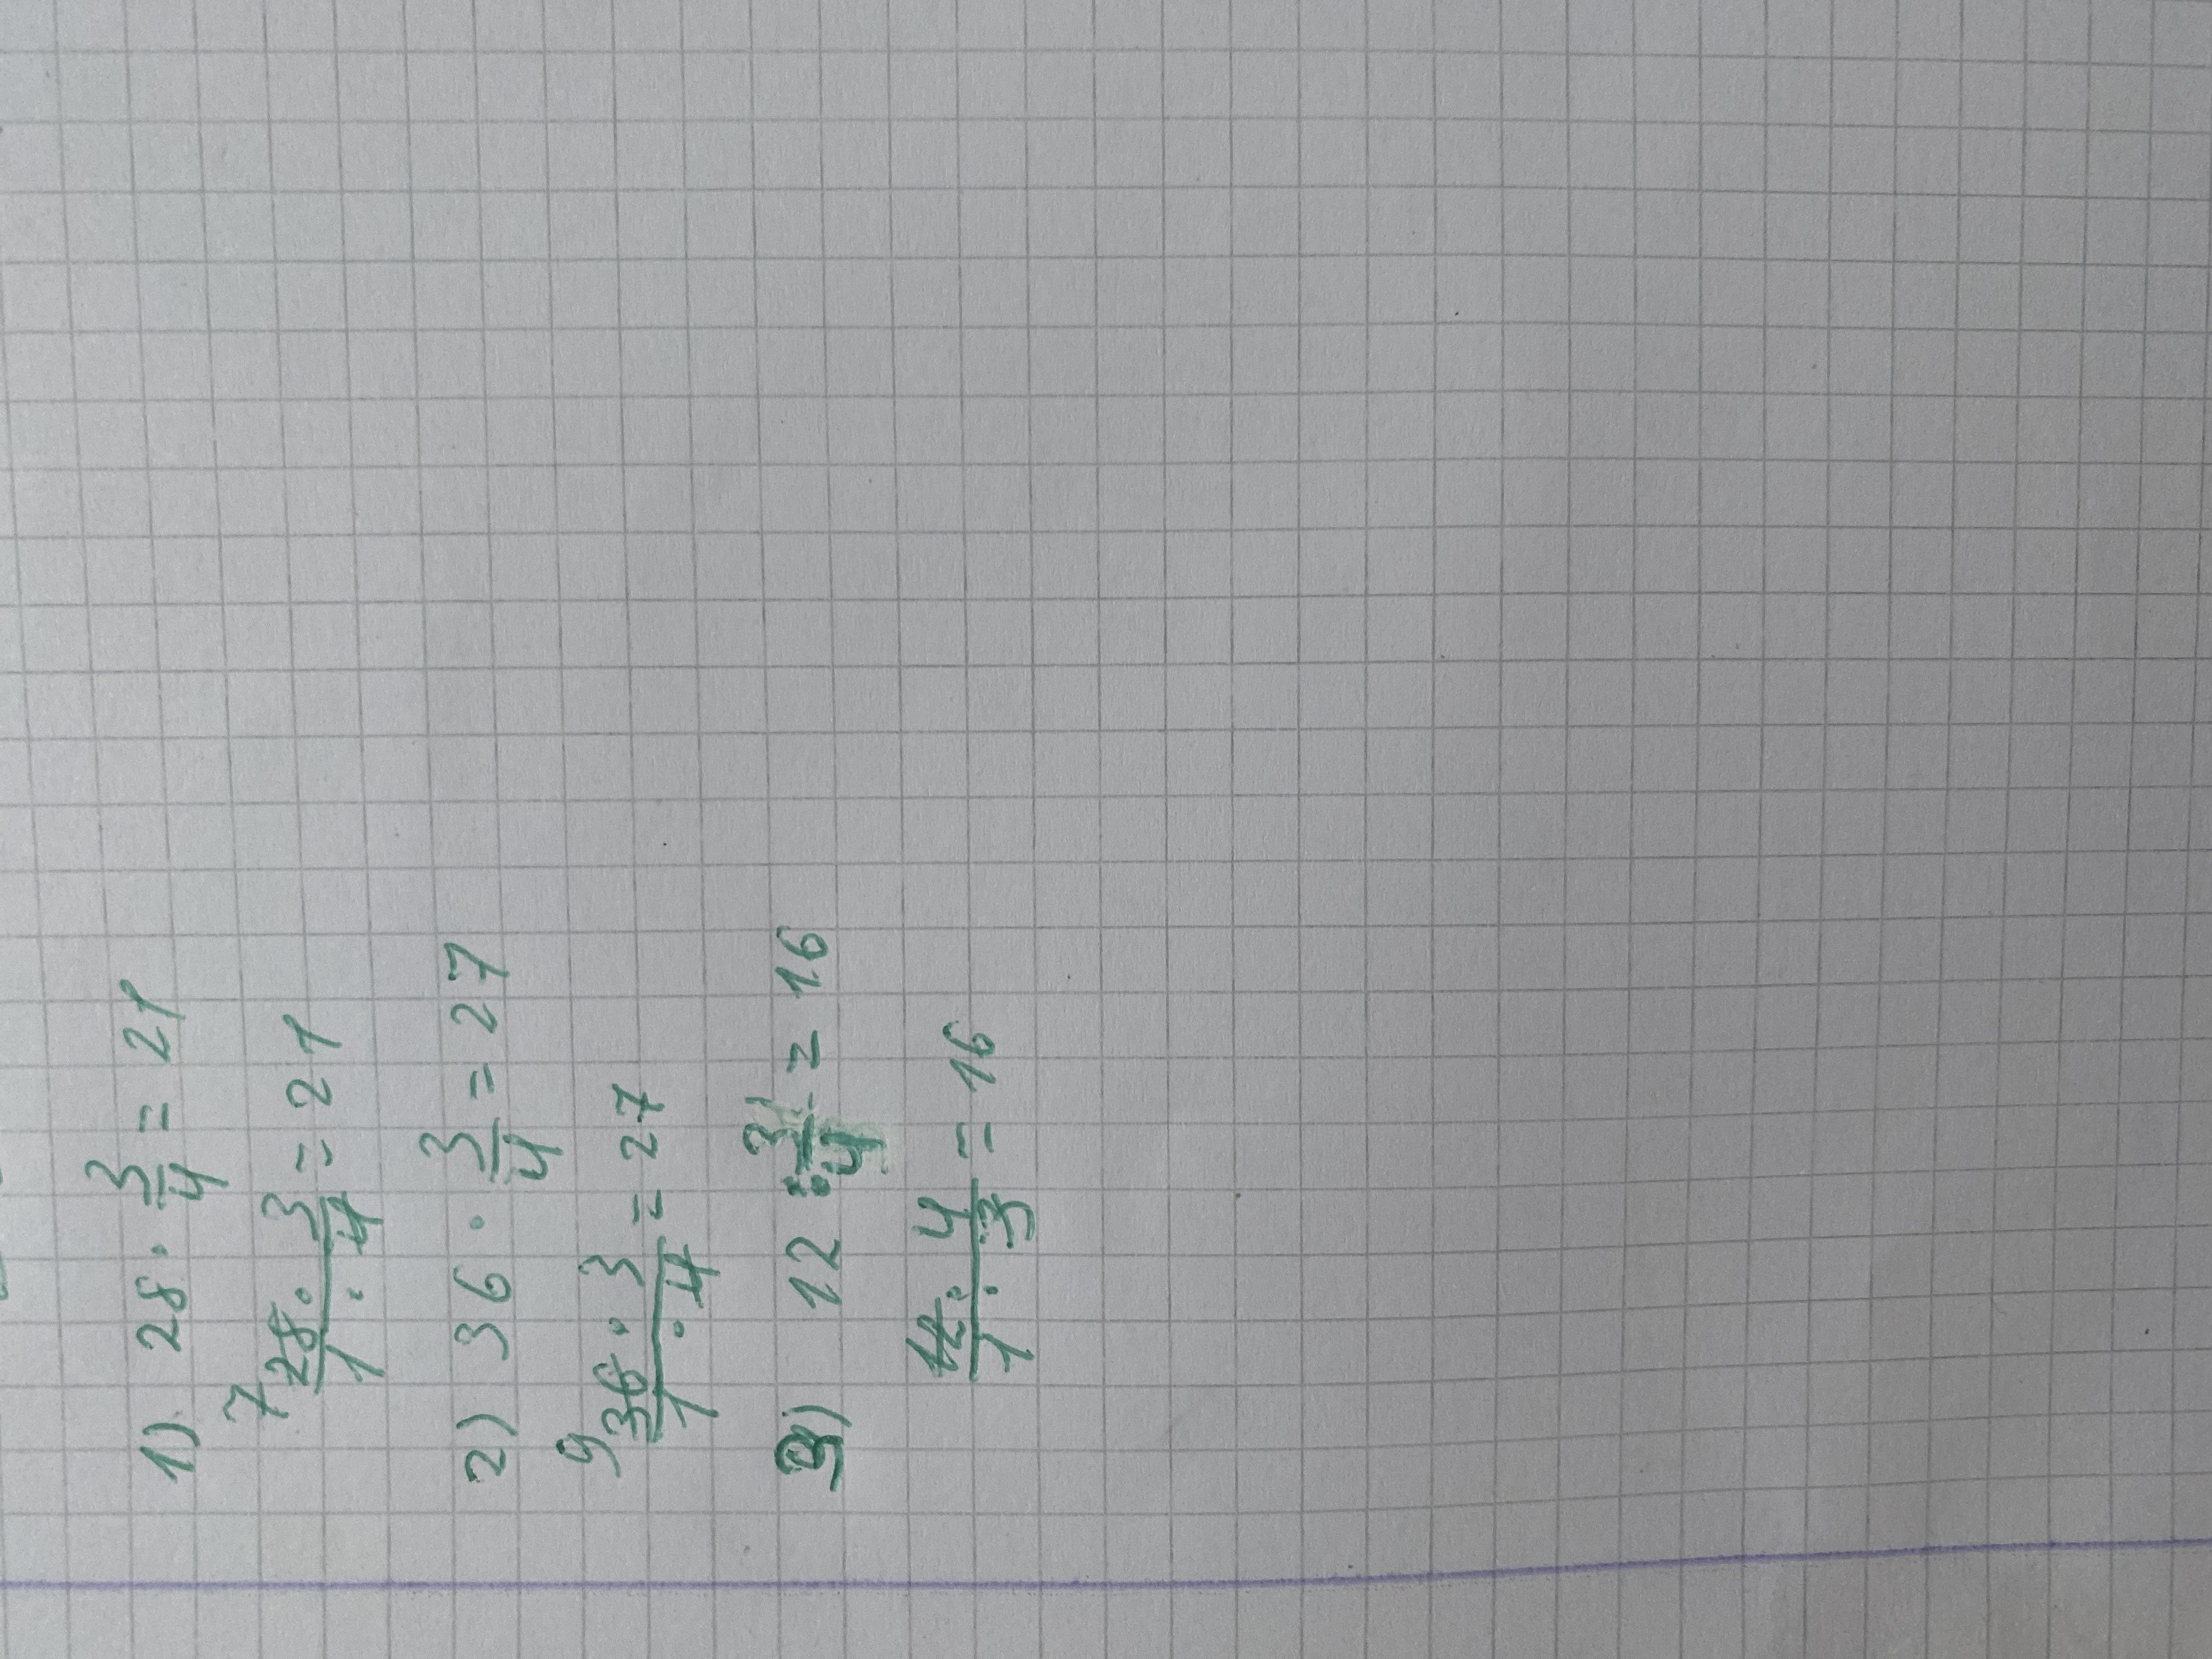 1) 28 · 3/4 = 21
7 28 · 3 / 1 · 4 = 21
2) 36 · 3/4 = 27
9 36 · 3 / 1 · 4 = 27
3) 12 : 3/4 = 16
12 · 4 / 1 · 3 = 16